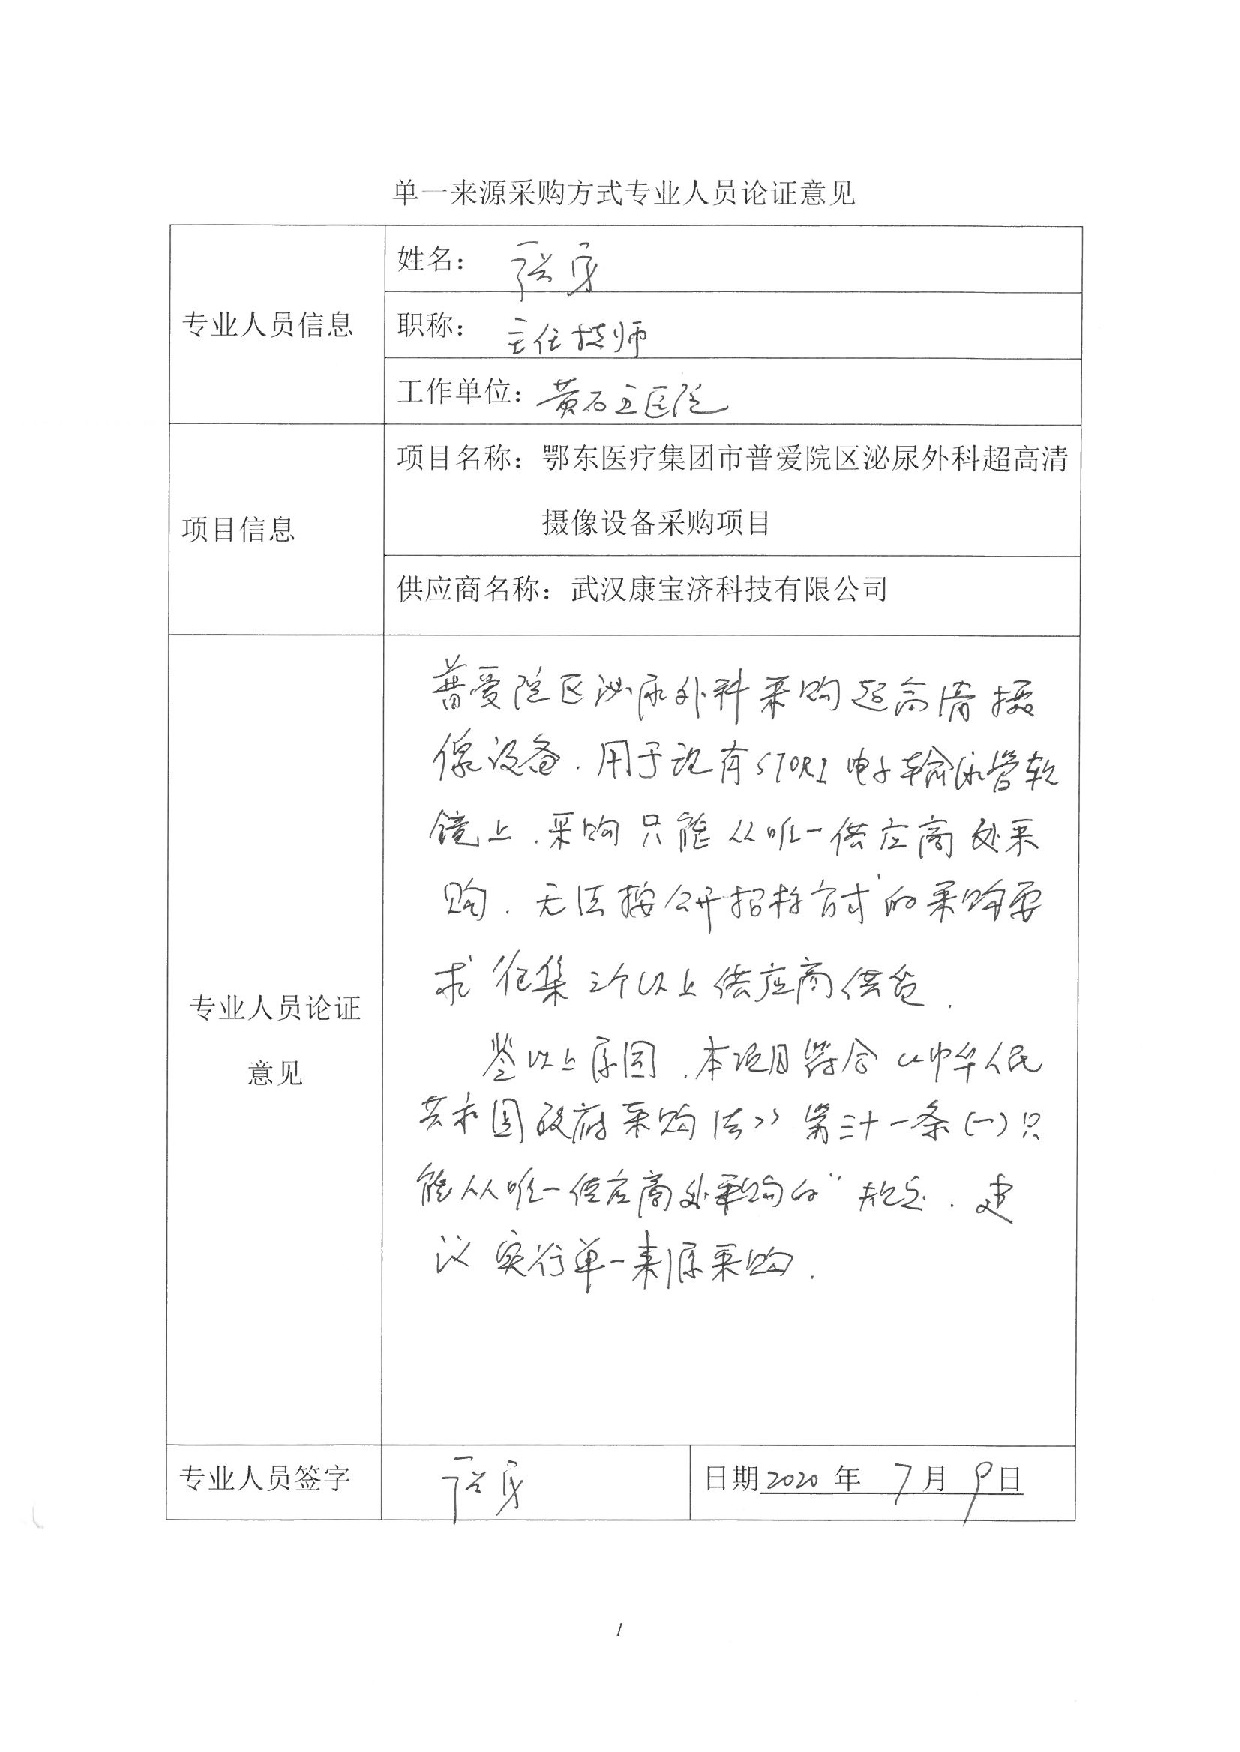 单一来源采购方式专业人员论证意见
专业人员信息
姓名：
职称：主任技师
工作单位：黄石五医院
项目信息
项目名称：鄂东医疗集团市普爱院区泌尿外科超高清
摄像设备采购项目
供应商名称：武汉康宝济科技有限公司
专业人员论证
意见
普爱院区泌尿外科采购超高清摄
像设备.用于现有STORZ电子输尿管软
镜上.采购只能从唯一供应商处采
购.无法按公开招标方式的采购要
求征集三个以上供应商供货.
鉴以上原因.本项目符合《中华人民
共和国政府采购法》第三十一条(一)只
能从唯一供应商处采购的"规定.建
议实行单一来源采购.
专业人员签字
日期2020年7月9日
1